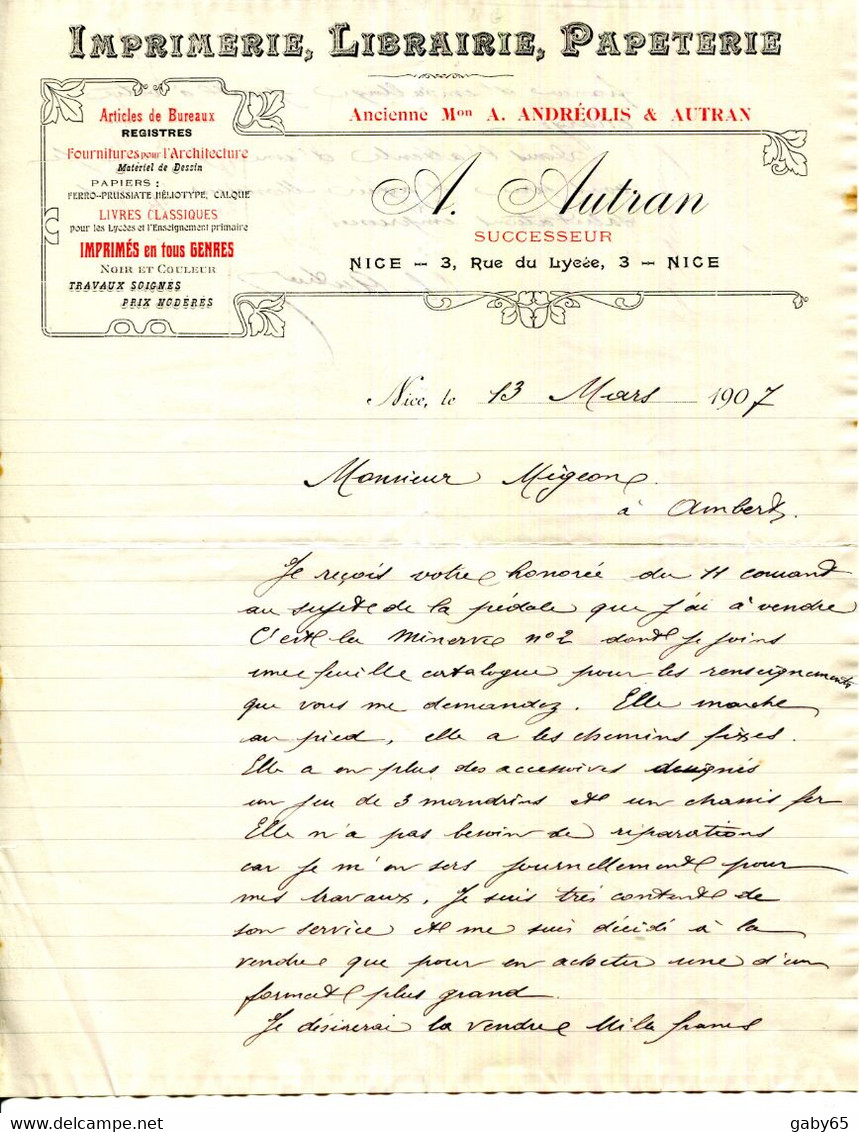 IMPRIMERIE, LIBRAIRIE, PAPETERIE
Ancienne Mon A. ANDRÉOLIS & AUTRAN
Articles de Bureaux
REGISTRES
Fournitures pour l'Architecture
Matériel de Dessin
PAPIERS :
FERRO-PRUSSIATE HÉLIOTYPE, CALQUE
LIVRES CLASSIQUES
pour les Lycées et l'Enseignement primaire
IMPRIMÉS en tous GENRES
NOIR ET COULEUR
TRAVAUX SOIGNÉS
PRIX MODÉRÉS
A. Autran
SUCCESSEUR
NICE — 3, Rue du Lycée, 3 — NICE
Nice, le 13 Mars 1907
Monsieur Migeon
à Ambert.
Je reçois votre honorée du 11 courant
au sujet de la pédale que j'ai à vendre
C'est la Minerve n° 2 dont je joins
une feuille catalogue pour les renseignements
que vous me demandez. Elle marche
au pied, elle a les chemins fixes.
Elle a en plus des accessoires désignés
un jeu de 3 mandrins et un chassis fer
Elle n'a pas besoin de réparations
car je m'en sers journellement pour
mes travaux. Je suis très content de
son service et me suis décidé à la
vendre que pour en acheter une d'un
format plus grand.
Je désirerai la vendre Mille francs
gaby65